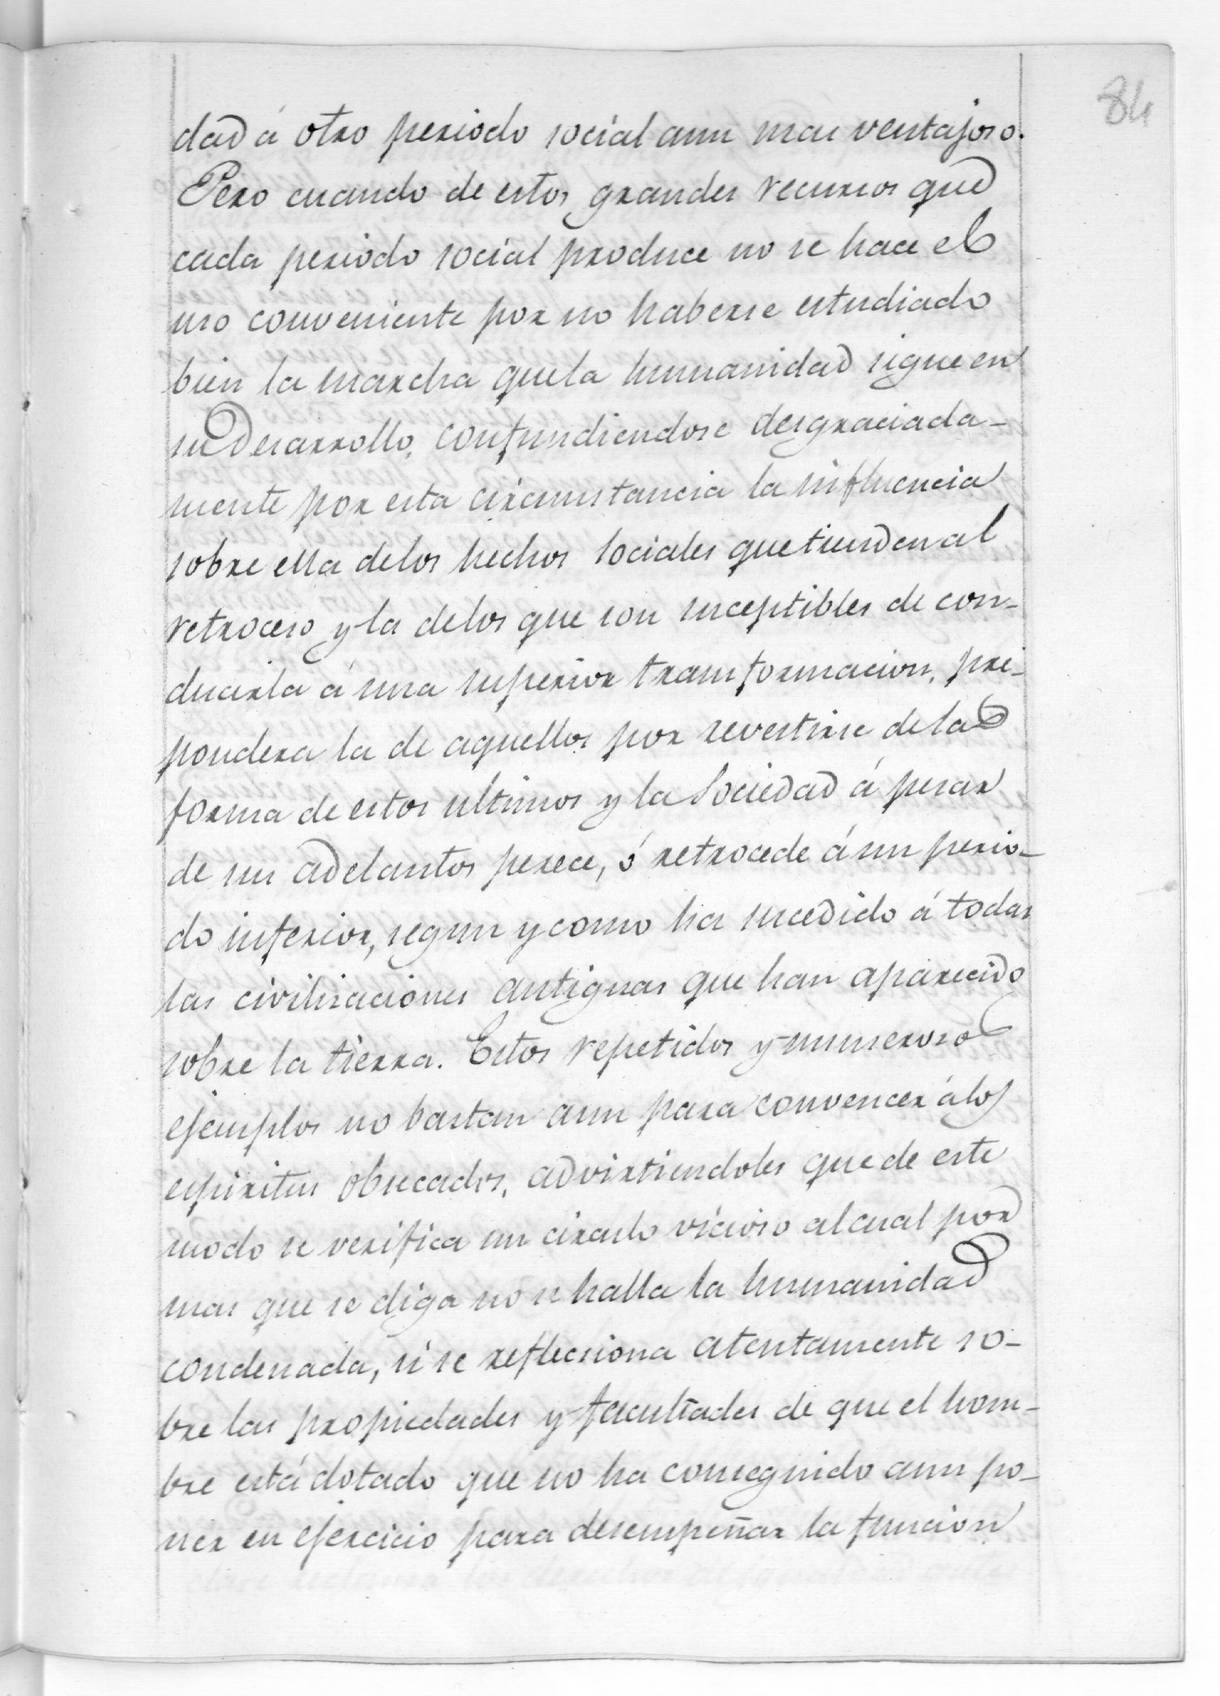 84
dad á otro periodo social aun mas ventajoso.
Pero cuando de estos grandes recursos que
cada periodo social produce no se hace el
uso conveniente por no haberse estudiado
bien la marcha que la humanidad sigue en
su desarrollo, confundiendose desgraciada-
mente por esta circunstancia la influencia
sobre ella de los hechos sociales que tienden al
retroceso y la de los que son suceptibles de con-
ducirla á una superior transformacion, pre-
pondera la de aquellos por revestirse de la
forma de estos ultimos y la Sociedad á pesar
de sus adelantos perece, ó retrocede á un perio-
do inferior, segun y como ha sucedido á todas
las civilisaciones antiguas que han aparecido
sobre la tierra. Estos repetidos y numerosos
ejemplos no bastan aun para convencer á los
espiritus obsecados, advirtiendoles que de este
modo se verifica un circulo vicioso al cual por
mas que se diga no se halla la humanidad
condenada, si se reflecsiona atentamente so-
bre las propiedades y facultades de que el hom-
bre está dotado que no ha conseguido aun po-
ner en ejercicio para desempeñar la funcion